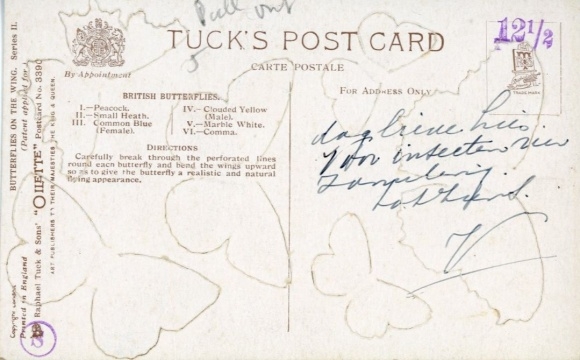 Pull out
TUCK'S POST CARD
CARTE POSTALE
By Appointment
FOR ADDRESS ONLY
12 1/2
TRADE MARK
BRITISH BUTTERFLIES.
I.—Peacock.
II.—Small Heath.
III. Common Blue
(Female).
IV.—Clouded Yellow
(Male).
V.—Marble White.
VI.—Comma.
DIRECTIONS
Carefully break through the perforated lines
round each butterfly and bend the wings upward
so as to give the butterfly a realistic and natural
flying appearance.
BUTTERFLIES ON THE WING. Series II.
(Patent applied for.)
Raphael Tuck & Sons' "OILETTE" Postcard No. 3390
ART PUBLISHERS TO THEIR MAJESTIES THE KING & QUEEN.
Copyright London
Printed in England
V